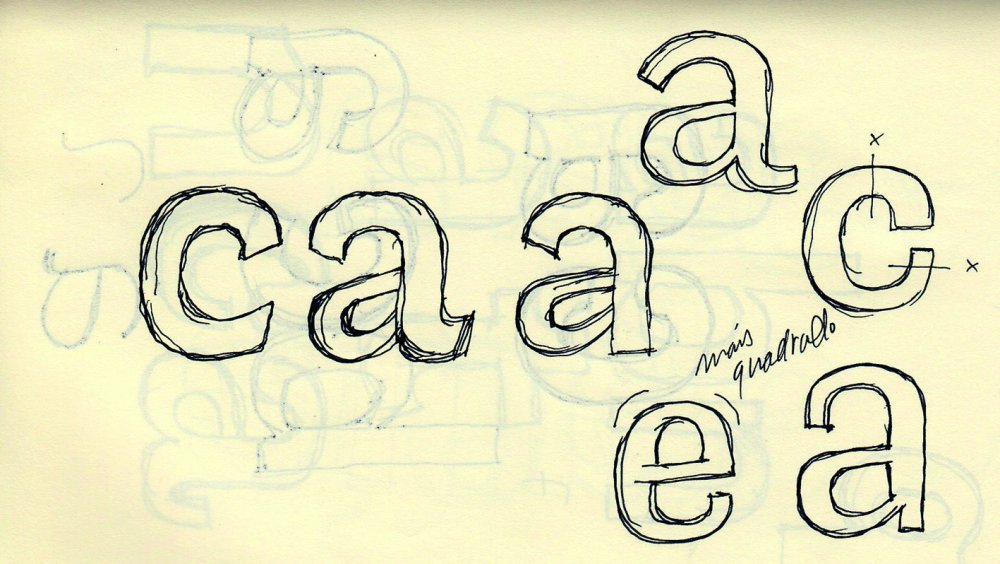 a
caa
c
x
x
mais
quadrado
e
a